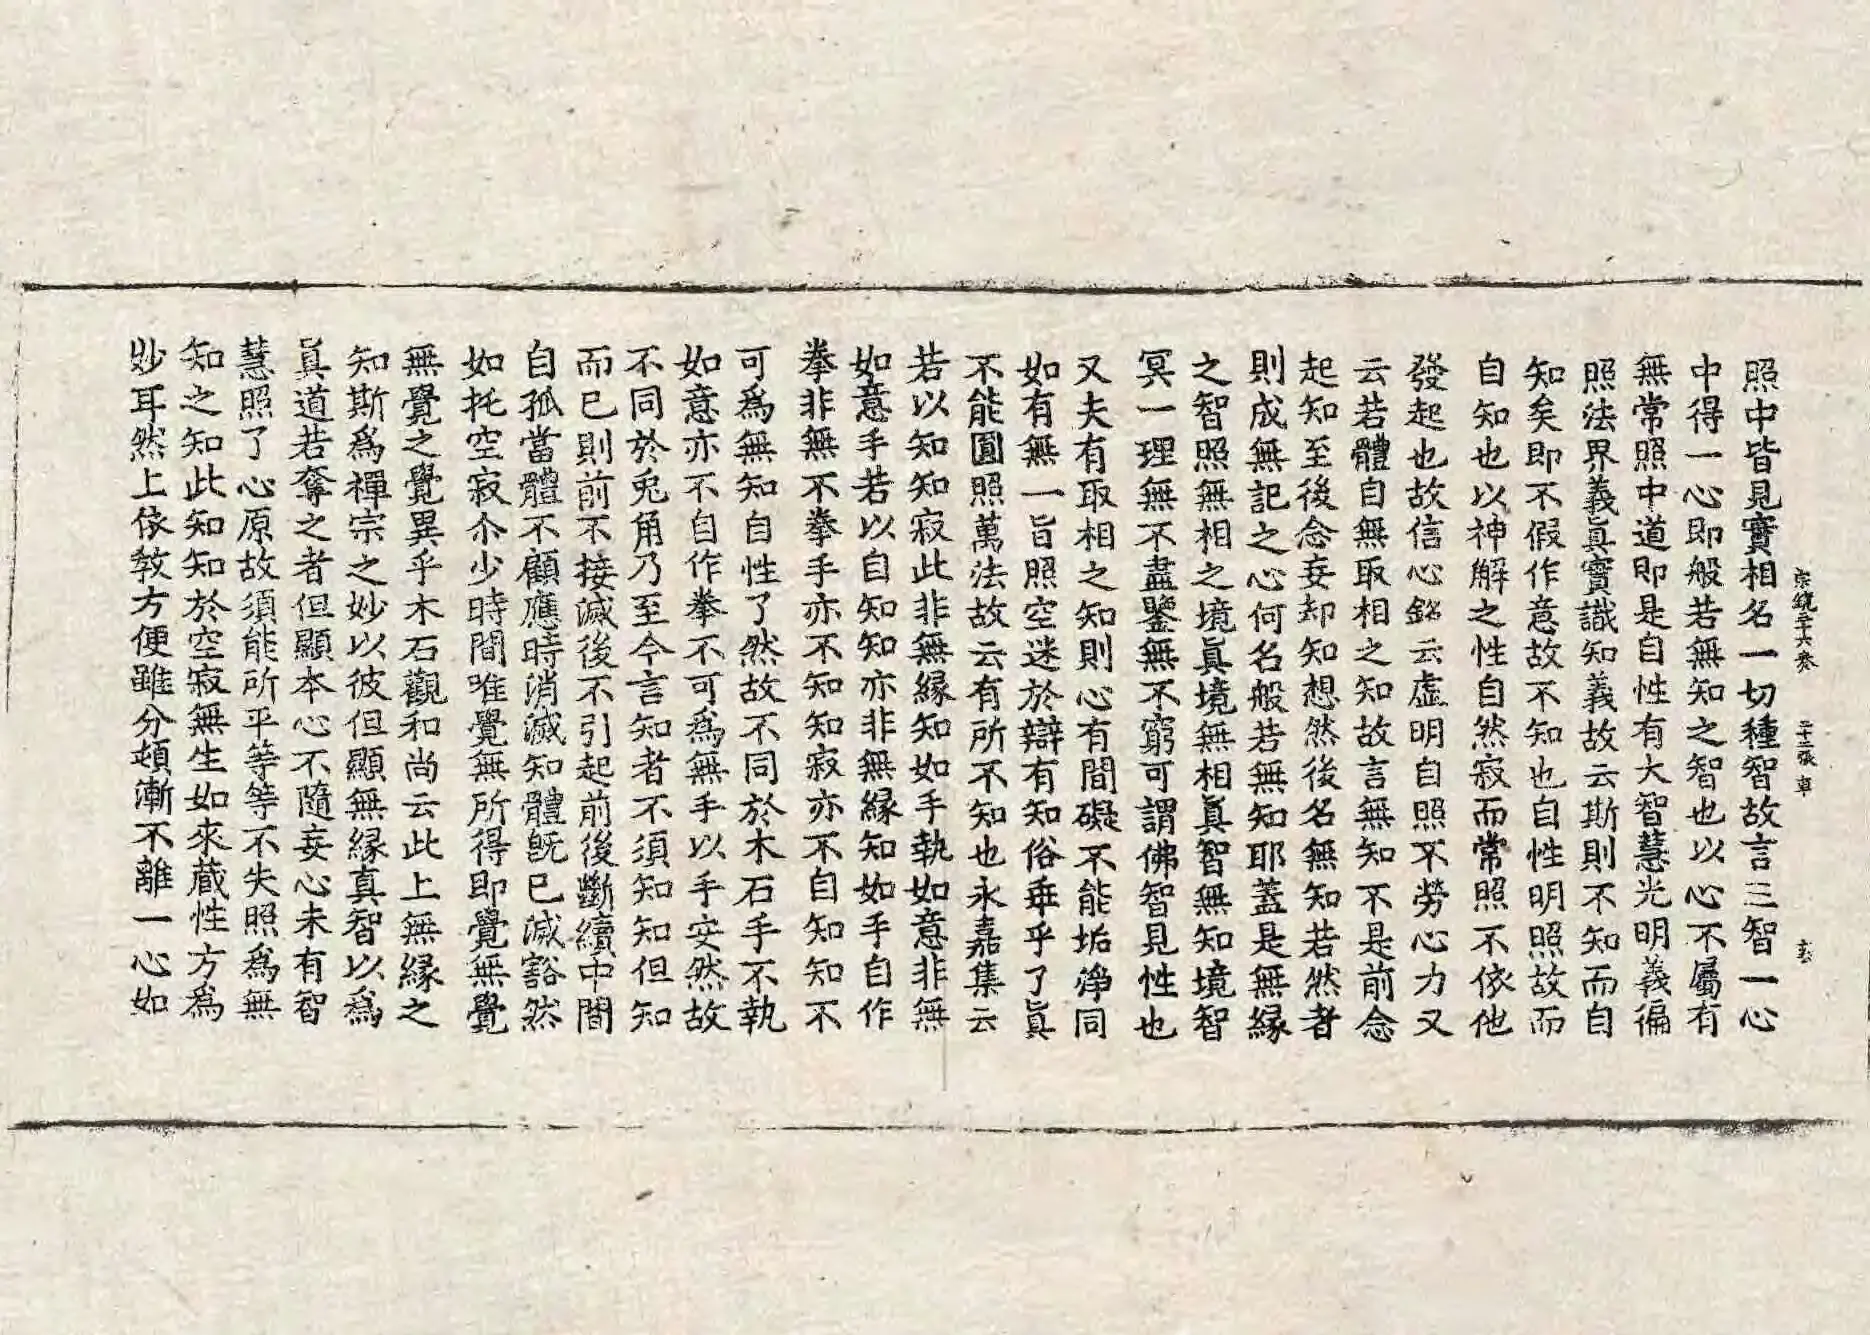 宗鏡三十六卷 二十二張 車
照中皆見實相名一切種智故言三智一心
中得一心即般若無知之智也以心不屬有
無常照中道即是自性有大智慧光明義徧
照法界義眞實識知義故云斯則不知而自
知矣即不假作意故不知也自性明照故而
自知也以神解之性自然寂而常照不依他
發起也故信心銘云虛明自照不勞心力又
云若體自無取相之知故言無知不是前念
起知至後念妄却知想然後名無知若然者
則成無記之心何名般若無知耶蓋是無緣
之智照無相之境眞境無相眞智無知境智
冥一理無不盡鑒無不窮可謂佛智見性也
又夫有取相之知則心有間礙不能垢淨同
如有無一旨照空迷於辯有知俗乖乎了眞
不能圓照萬法故云有所不知也永嘉集云
若以知知寂此非無緣知如手執如意非無
如意手若以自知知亦非無緣知如手自作
拳非無不拳手亦不知知寂亦不自知知不
可爲無知自性了然故不同於木石手不執
如意亦不自作拳不可爲無手以手安然故
不同於兎角乃至今言知者不須知知但知
而已則前不接滅後不引起前後斷續中間
自孤當體不顧應時消滅知體旣已滅豁然
如托空寂尒少時間唯覺無所得即覺無覺
無覺之覺異乎木石觀和尚云此上無緣之
知斯爲禪宗之妙以彼但顯無緣真智以爲
眞道若奪之者但顯本心不隨妄心未有智
慧照了心原故須能所平等等不失照爲無
知之知此知知於空寂無生如來藏性方爲
妙耳然上依敎方便雖分頓漸不離一心如